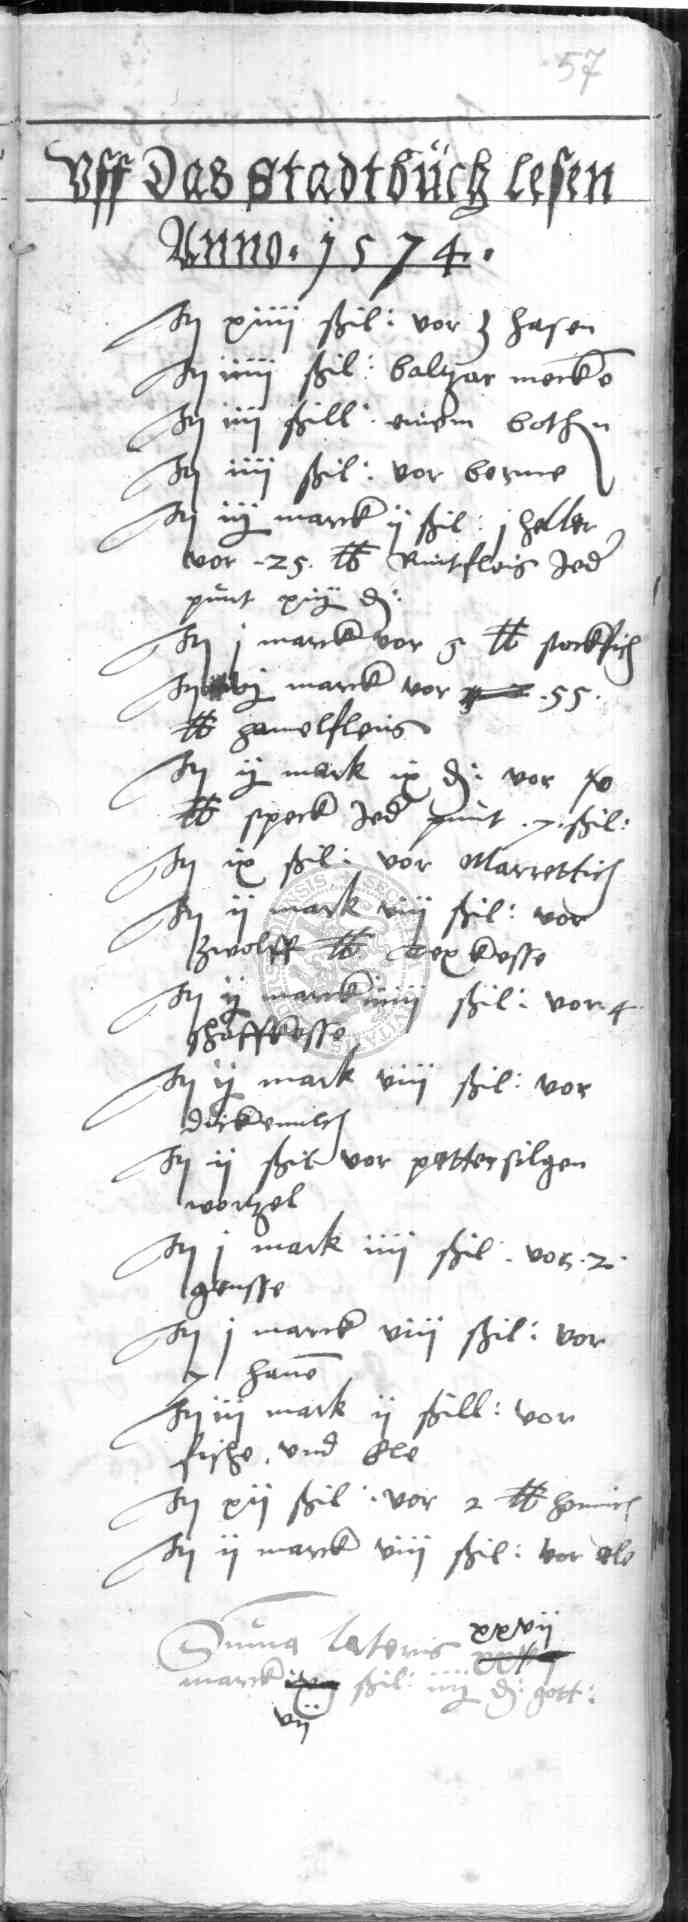 57
Vff Das Stadtbuch lesen
Anno · 1574 ·
It xiiij ßil: vor 3 hasen
It iiij ßil: baltzar
It iiij ßill: einem bothen
It iiij ßil: vor berme
It iij marck ij ßil: j heller
vor 25 ℔ Rintfleis Jed
punt xiij d:
It j marck vor 5 ℔ stockfisch
It marck vor 55
℔ hamelfleis
It ij mark ix d: vor
℔ speck Jed punt 7 ßil:
It ix ßil: vor Marrettich
It ij mark viij ßil: vor
Zwolff ℔ kesse
It ij marck iiij ßil: vor 4
schaffkesse
It ij mark viij ßil: vor
dickemilch
It ij ßil vor pettersilgen
wortzel
It j mark iiij ßil: vor 2
gensse
It j marck viij ßil: vor
7 hane
It iij mark ij ßill: vor
fische vnd ele
It xij ßil: vor 2 ℔
It ij marck viij ßil: vor ele
Suma lateris xxvij
marck ßil: d: gott:
vij